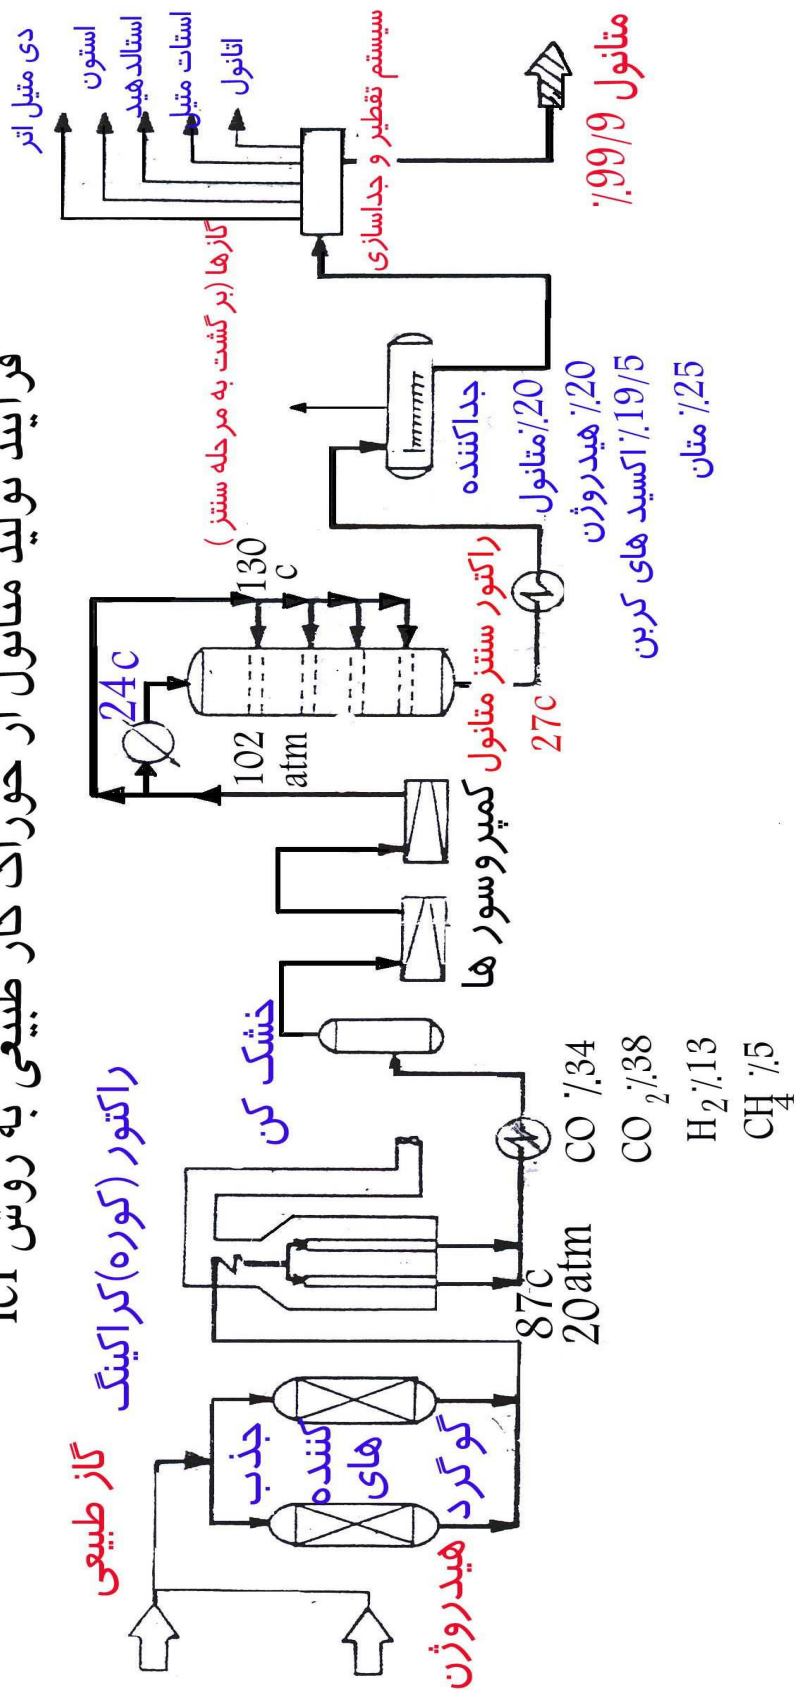 فرایند تولید متانول از خوراک گاز طبیعی به روش ICI
گاز طبیعی
هیدروژن
جذب
کننده
های
گوگرد
راکتور (کوره)کراکینگ
87c
20atm
خشک کن
CO ٪34
CO2٪38
H2٪13
CH4 ٪5
کمپروسور ها
24c
102
atm
130
c
راکتور سنتز متانول
27c
گازها (بر گشت به مرحله سنتز )
جداکننده
20٪متانول
20٪ هیدروژن
19/5٪ اکسید های کربن
25٪ متان
سیستم تقطیر و جداسازی
دی متیل اتر
استون
استالدهید
استات متیل
اتانول
متانول 99/9٪